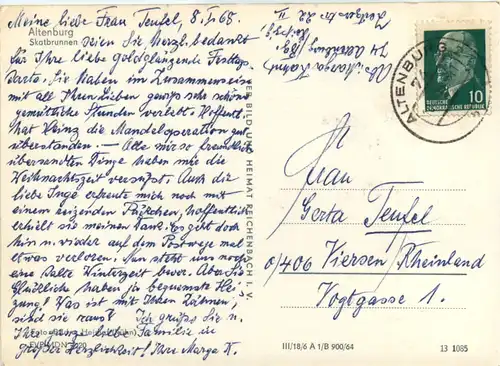 Meine liebe Frau Teufel, 8.I.68.
Altenburg
Skatbrunnen
Seien Sie herzl. bedankt
für Ihre liebe goldglänzende Festtags-
karte. Sie haben im Zusammensein
mit all Ihren Lieben gewiß sehr schöne
gemütliche Stunden verlebt. Hoffentl.
hat Heinz die Mandeloperation gut
überstanden. – Alle mir so freundlich
übersandten Dinge haben mir die
Weihnachtszeit versüßt. Auch die
liebe Inge erfreute mich noch mit
einem reizenden Päckchen, hoffentlich
erhielt sie meinen Dank. Es geht doch
hin u. wieder auf dem Postwege mal
etwas verloren. Nun steht uns noch
eine kalte Winterzeit bevor. Aber Sie
Glücklich haben ja bequemste Hei-
zung! Was ist mit Ihren Zähnen,
sind sie raus? Ich grüße Sie u.
Ihre liebe Familie in
großer Herzlichkeit! Ihre Marga K.
BILD UND HEIMAT REICHENBACH I. V.
Abs. Marga
74 Altenburg/Bz.
Leipzig
22 II
ALTENBURG
10
DEUTSCHE
DEMOKRATISCHE REPUBLIK
Frau
Gerta Teufel
0/406 Viersen/Rheinland
Vogtgasse 1.
III/18/6 A 1/B 900/64
13 1085